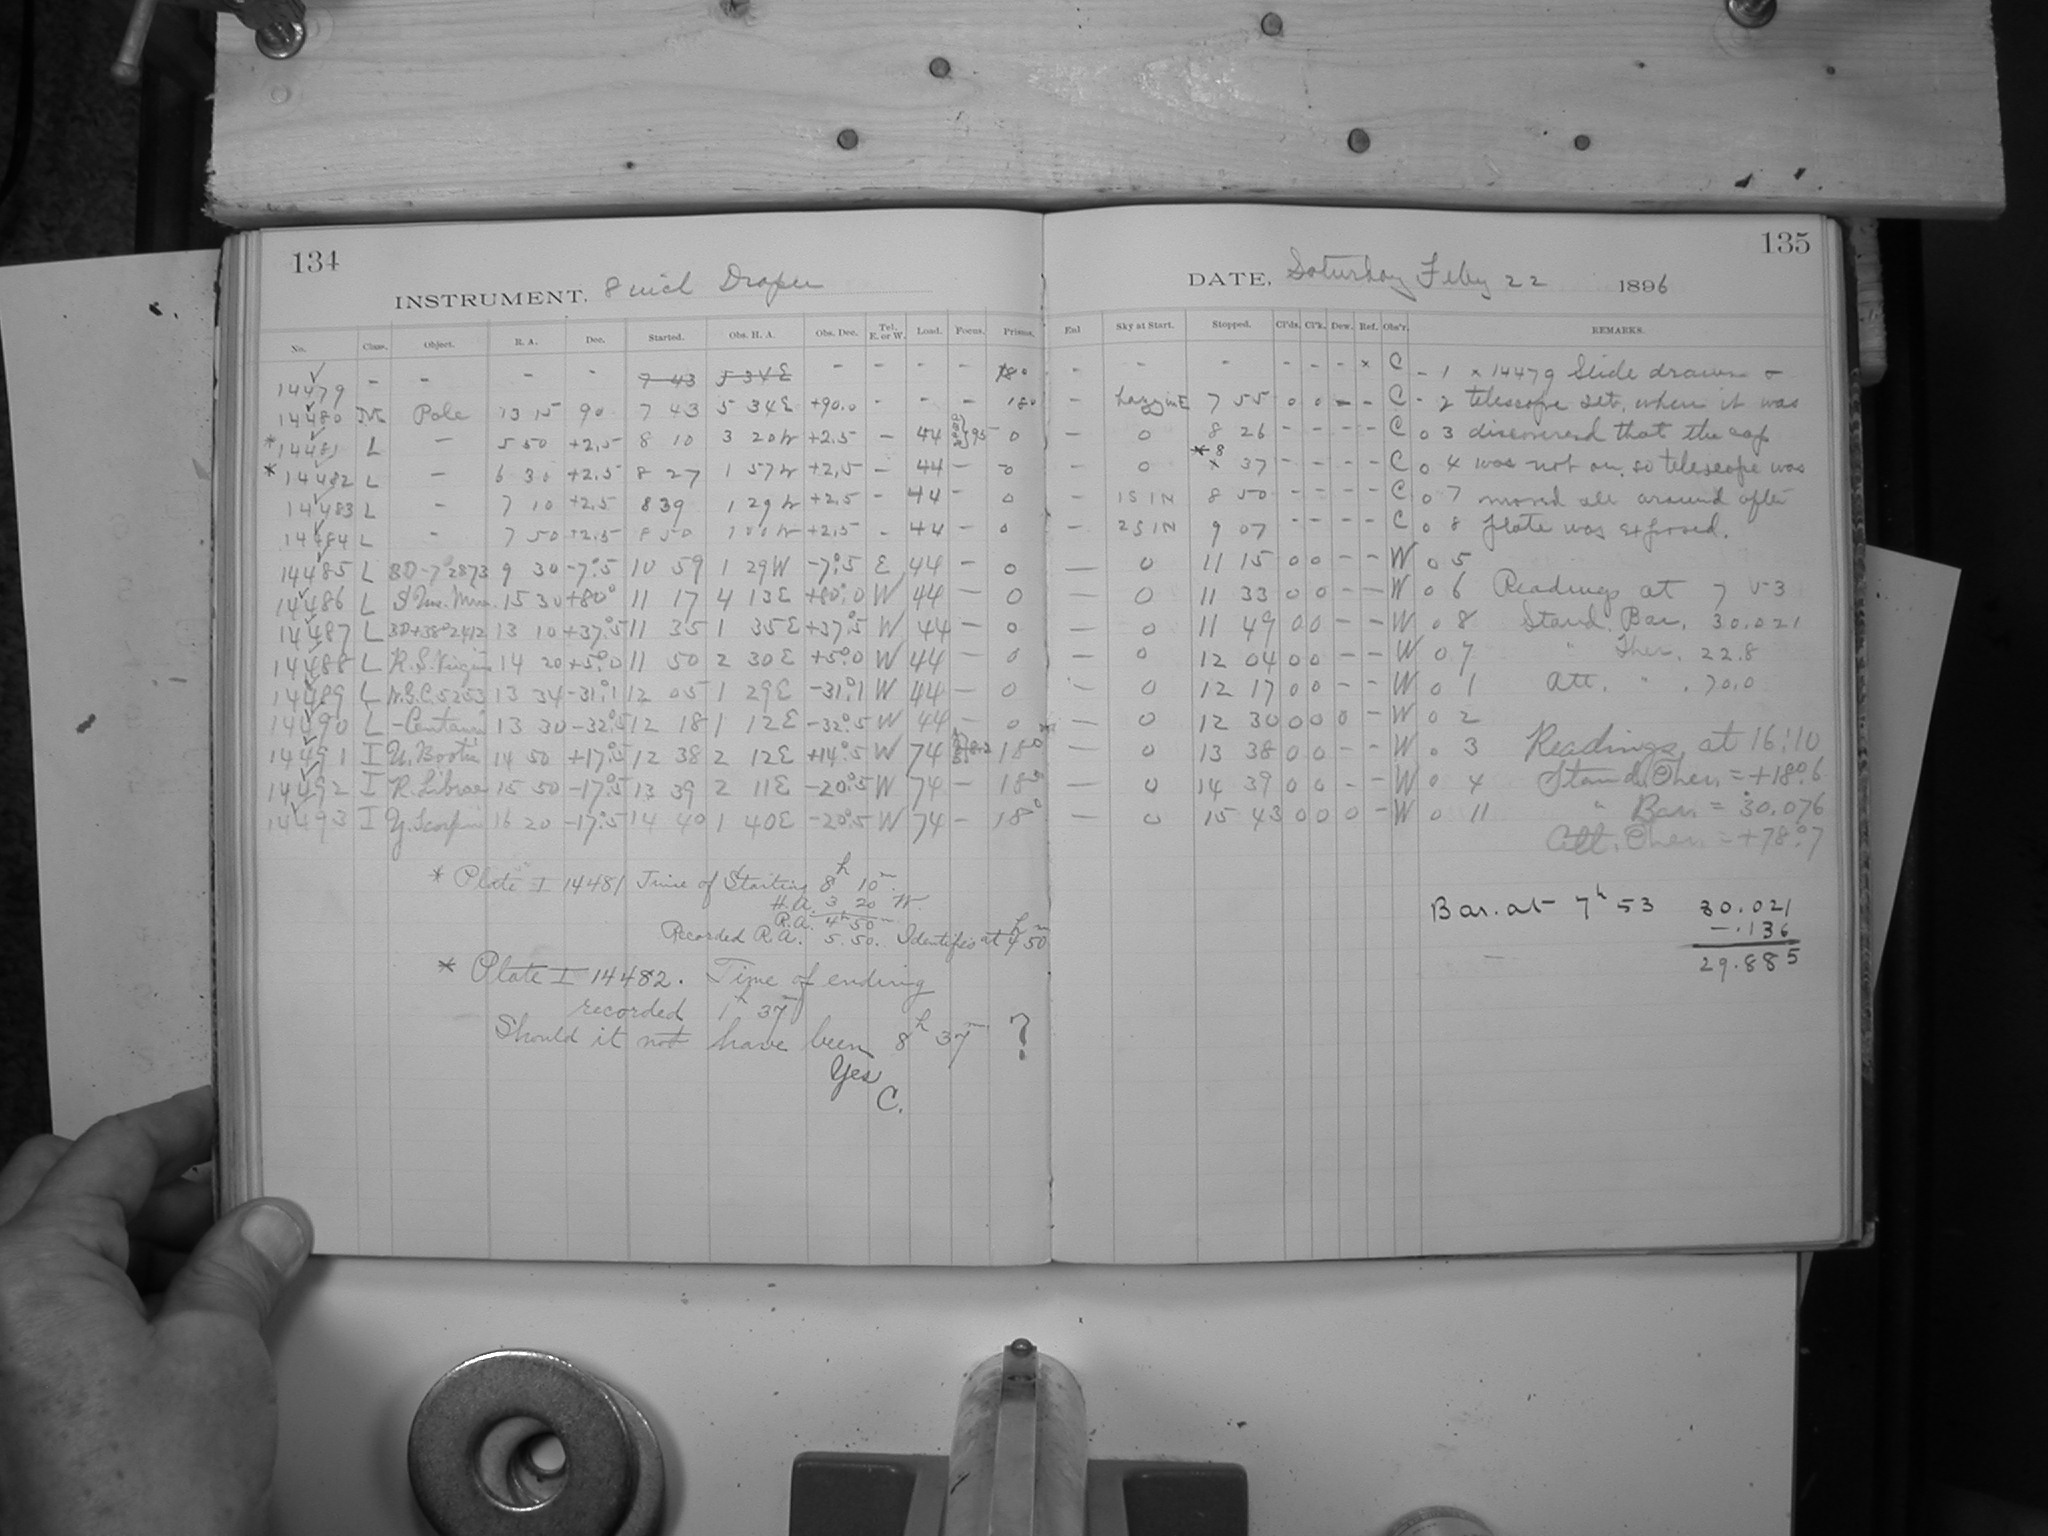 134
INSTRUMENT. 8 inch Draper
No. Class. Object. R. A. Dec. Started. Obs. H. A. Obs. Dec. Tel. E. or W. Load. Focus. Prisms.
14479 - - - - 7 43 5 34E - - - - 180
14480 M Pole 13 15 90 7 43 5 34E +90.0 - - - 180
* 14481 L - 5 50 +2.5 8 10 3 20W +2.5 - 44 0
* 14482 L - 6 30 +2.5 8 27 1 57W +2.5 - 44 - 0
14483 L - 7 10 +2.5 8 39 1 29W +2.5 - 44 - 0
14484 L - 7 50 +2.5 8 50 1 00W +2.5 - 44 - 0
14485 L BD-7°2873 9 30 -7°.5 10 59 1 29W -7°.5 E 44 - 0
14486 L S Urs. Min. 15 30 +80° 11 17 4 13E +80°.0 W 44 - 0
14487 L BD+38°2412 13 10 +37°.5 11 35 1 35E +37°.5 W 44 - 0
14488 L R.S. Virginis 14 20 +5°.0 11 50 2 30E +5°.0 W 44 - 0
14489 L N.G.C. 5253 13 34 -31°.1 12 05 1 29E -31°.1 W 44 - 0
14490 L - Centauri 13 30 -32°.5 12 18 1 12E -32°.5 W 44 - 0
14491 I U. Bootis 14 50 +17°.5 12 38 2 12E +14°.5 W 74 18°
14492 I R. Librae 15 50 -17°.5 13 39 2 11E -20°.5 W 74 - 18°
14493 I Y. Scorpii 16 20 -17°.5 14 40 1 40E -20°.5 W 74 - 18°
* Plate I 14481 Time of Starting 8h 10m.
H.A. 3 20 W.
R.A. 4h 50m
Recorded R.A. 5.50. Identifies at 4h 50m
* Plate I 14482. Time of ending
recorded 1h 37m
Should it not have been 8h 37m ?
Yes
C.
135
DATE. Saturday Feby 22 1896
Enl Sky at Start. Stopped. Cl'ds. Cl'k. Dew. Ref. Obs'r. REMARKS.
- - - - - - × C - 1 × 14479 Slide drawn &
- hazy in E 7 55 0 0 - - C - 2 telescope set, when it was
- 0 8 26 - - - - C 0 3 discovered that the cap
- 0 * 8 × 37 - - - - C 0 4 was not on, so telescope was
- 1S1N 8 50 - - - - C 0 7 moved all around after
- 2S1N 9 07 - - - - C 0 8 plate was exposed.
- 0 11 15 0 0 - - W 0 5
- 0 11 33 0 0 - - W 0 6 Readings at 7 53
- 0 11 49 0 0 - - W 0 8 Stand. Bar. 30.021
- 0 12 04 0 0 - - W 0 7 " Ther. 22.8
- 0 12 17 0 0 - - W 0 1 Att. " . 70.0
- 0 12 30 0 0 0 - W 0 2
- 0 13 38 0 0 - - W 0 3 Readings at 16:10
- 0 14 39 0 0 - - W 0 4 Stand. Ther. = +18°.6
- 0 15 43 0 0 0 - W 0 11 " Bar. = 30.076
Att. Ther. = +78°.7
Bar. at 7h 53 30.021
-.136
29.885